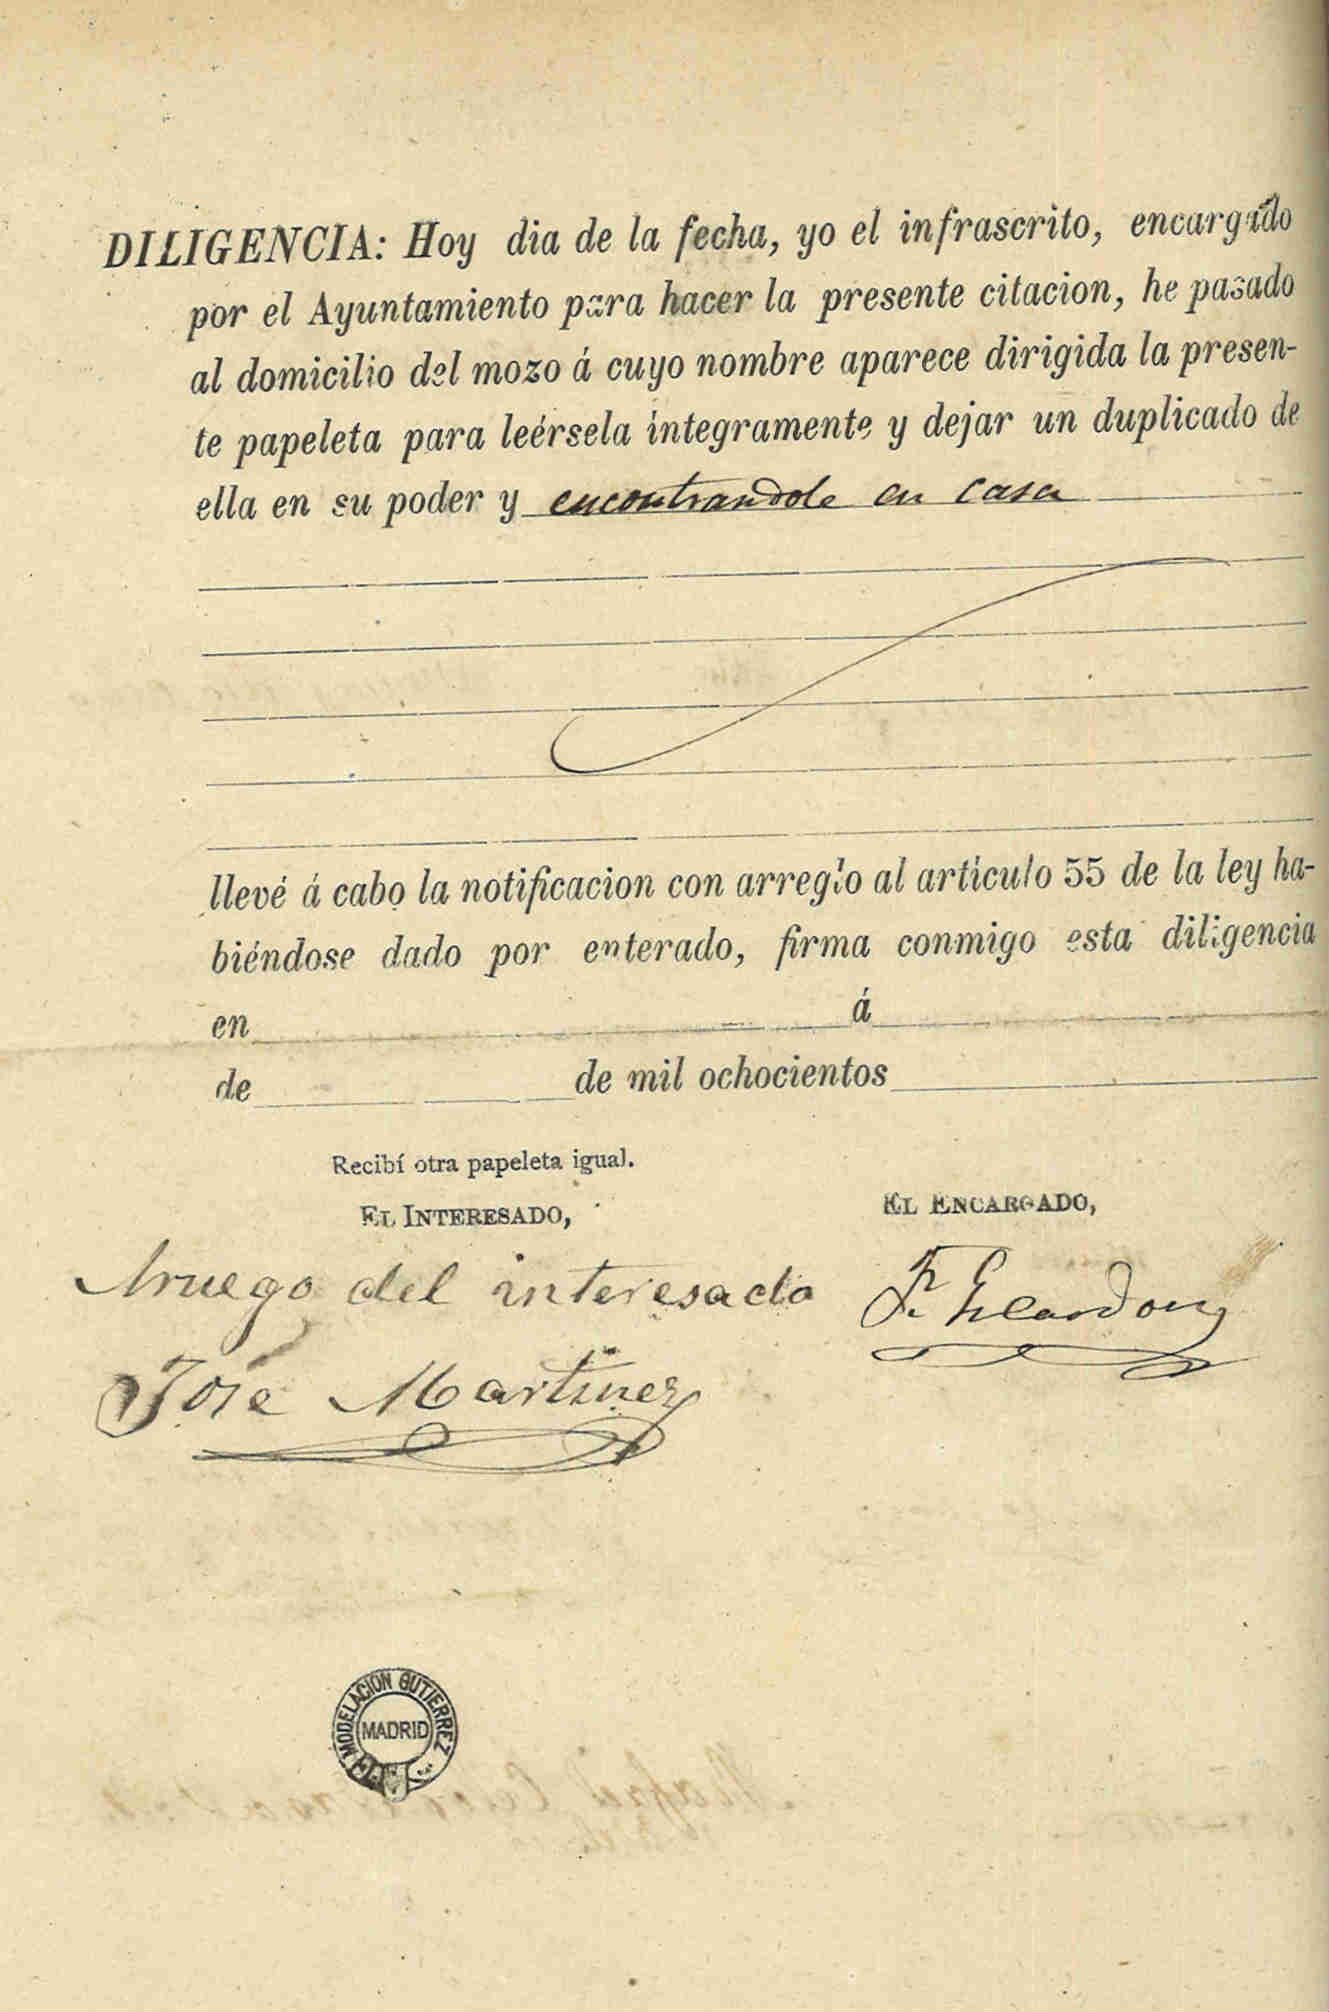 DILIGENCIA: Hoy dia de la fecha, yo el infrascrito, encargado
por el Ayuntamiento para hacer la presente citacion, he pasado
al domicilio del mozo á cuyo nombre aparece dirigida la presen-
te papeleta para leérsela íntegramente y dejar un duplicado de
ella en su poder y encontrandole en casa
llevé á cabo la notificacion con arreglo al artículo 55 de la ley ha-
biéndose dado por enterado, firma conmigo esta diligencia
en á
de de mil ochocientos
Recibí otra papeleta igual.
EL INTERESADO, EL ENCARGADO,
Aruego del interesado
José Martinez
MODELACION GUTIERREZ
MADRID